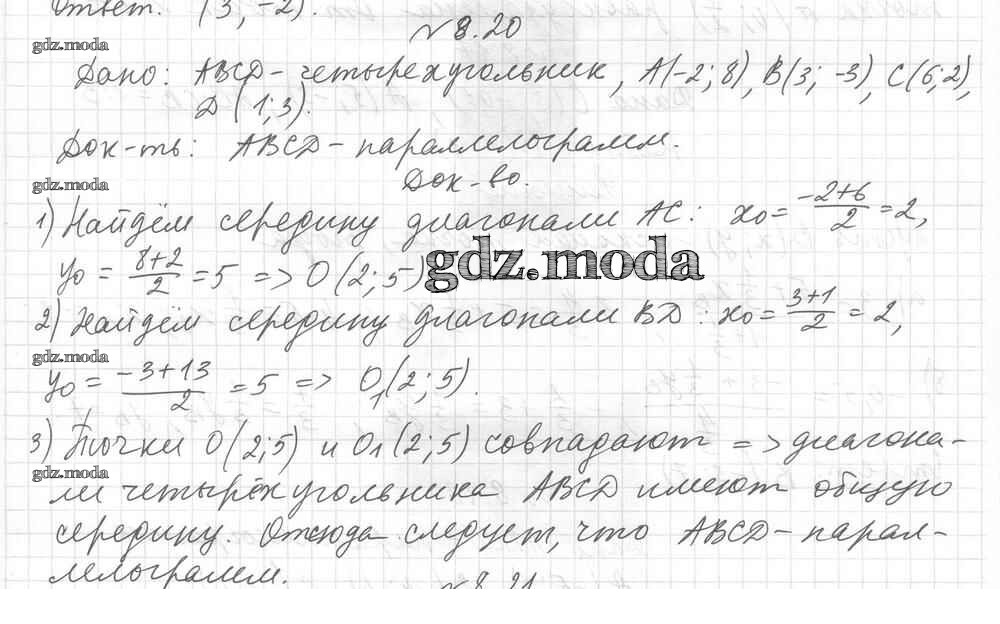 Ответ. (3; -2).
№ 8.20
gdz.moda
Дано: ABCD - четырехугольник, A(-2; 8), B(3; -3), C(6; 2),
D (1; 3).
Док-ть: ABCD - параллелограмм.
Док-во.
gdz.moda
1) Найдём середину диагонали AC: x₀ = (-2+6)/2 = 2,
y₀ = (8+2)/2 = 5 => O (2; 5)
gdz.moda
2) Найдём середину диагонали BD: x₀ = (3+1)/2 = 2,
gdz.moda
y₀ = (-3+13)/2 = 5 => O₁(2; 5).
3) Точки O(2; 5) и O₁(2; 5) совпадают => диагона-
gdz.moda
ли четырёхугольника ABCD имеют общую
середину. Отсюда следует, что ABCD - парал-
лелограмм.
№ 8.21